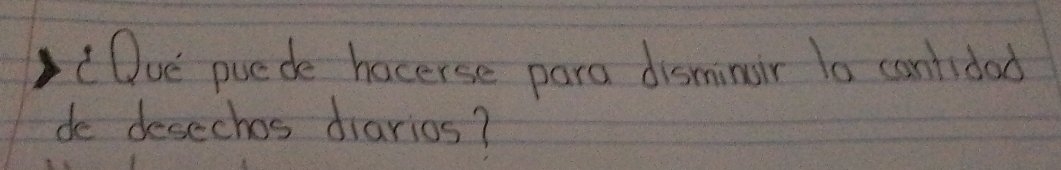 ➤¿Qué puede hacerse para disminuir la cantidad
de desechos diarios?